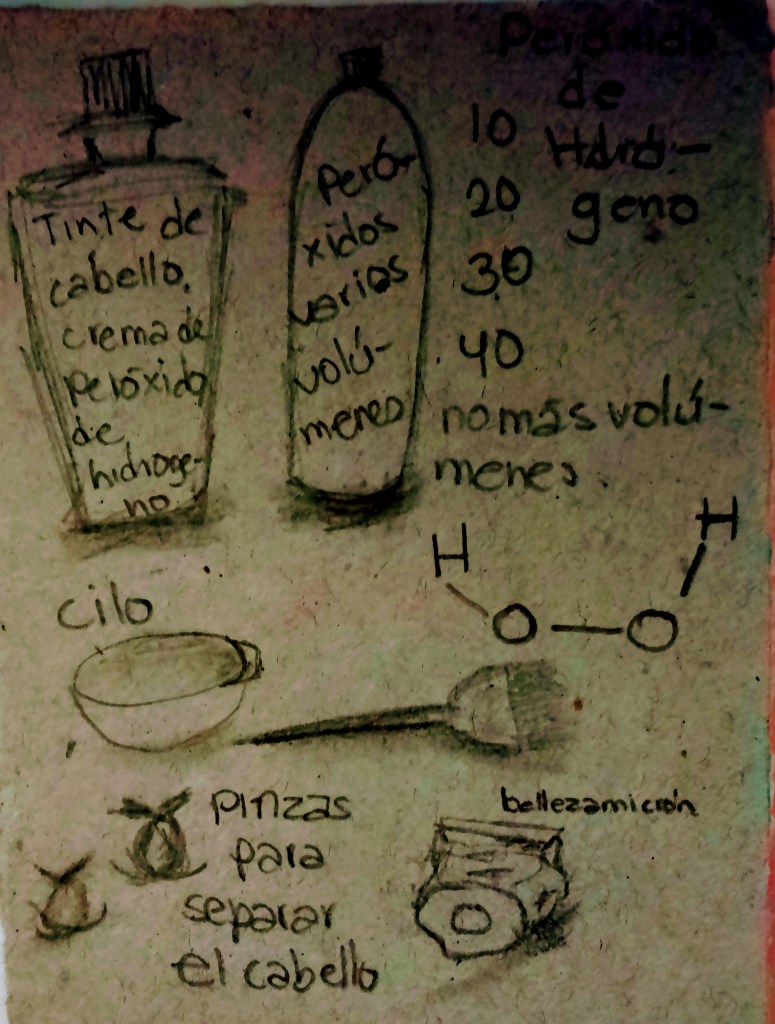 Peróxido
de
Hidró-
geno
Tinte de
cabello,
crema de
peróxido
de
hidroge-
no
Peró-
xidos
varios
volú-
menes
10
20
30
40
no más volú-
menes.
H
H
O — O
cilo
pinzas
para
separar
el cabello
bellezamicrón